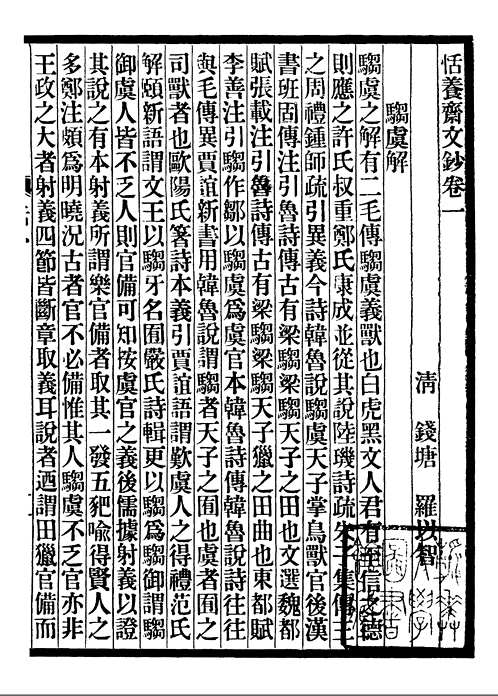 恬養齋文鈔卷一
清 錢塘 羅以智
騶虞解
騶虞之解有二毛傳騶虞義獸也白虎黑文人君有至信之德
則應之許氏叔重鄭氏康成並從其說陸璣詩疏朱子集傳主
之周禮鍾師疏引異義今詩韓魯說騶虞天子掌鳥獸官後漢
書班固傳注引魯詩傳古有梁騶梁騶天子之田也文選魏都
賦張載注引魯詩傳古有梁騶梁騶天子獵之田曲也東都賦
李善注引騶作鄒以騶虞爲虞官本韓魯詩傳韓魯說詩往往
與毛傳異賈誼新書用韓魯說謂騶者天子之囿也虞者囿之
司獸者也歐陽氏箸詩本義引賈誼語謂歎虞人之得禮范氏
解頤新語謂文王以騶牙名囿嚴氏詩輯更以騶爲騶御謂騶
御虞人皆不乏人則官備可知按虞官之義後儒據射義以證
其說之有本射義所謂樂官備者取其一發五豝喻得賢人之
多鄭注頗爲明曉況古者官不必備惟其人騶虞不乏官亦非
王政之大者射義四節皆斷章取義耳說者迺謂田獵官備而